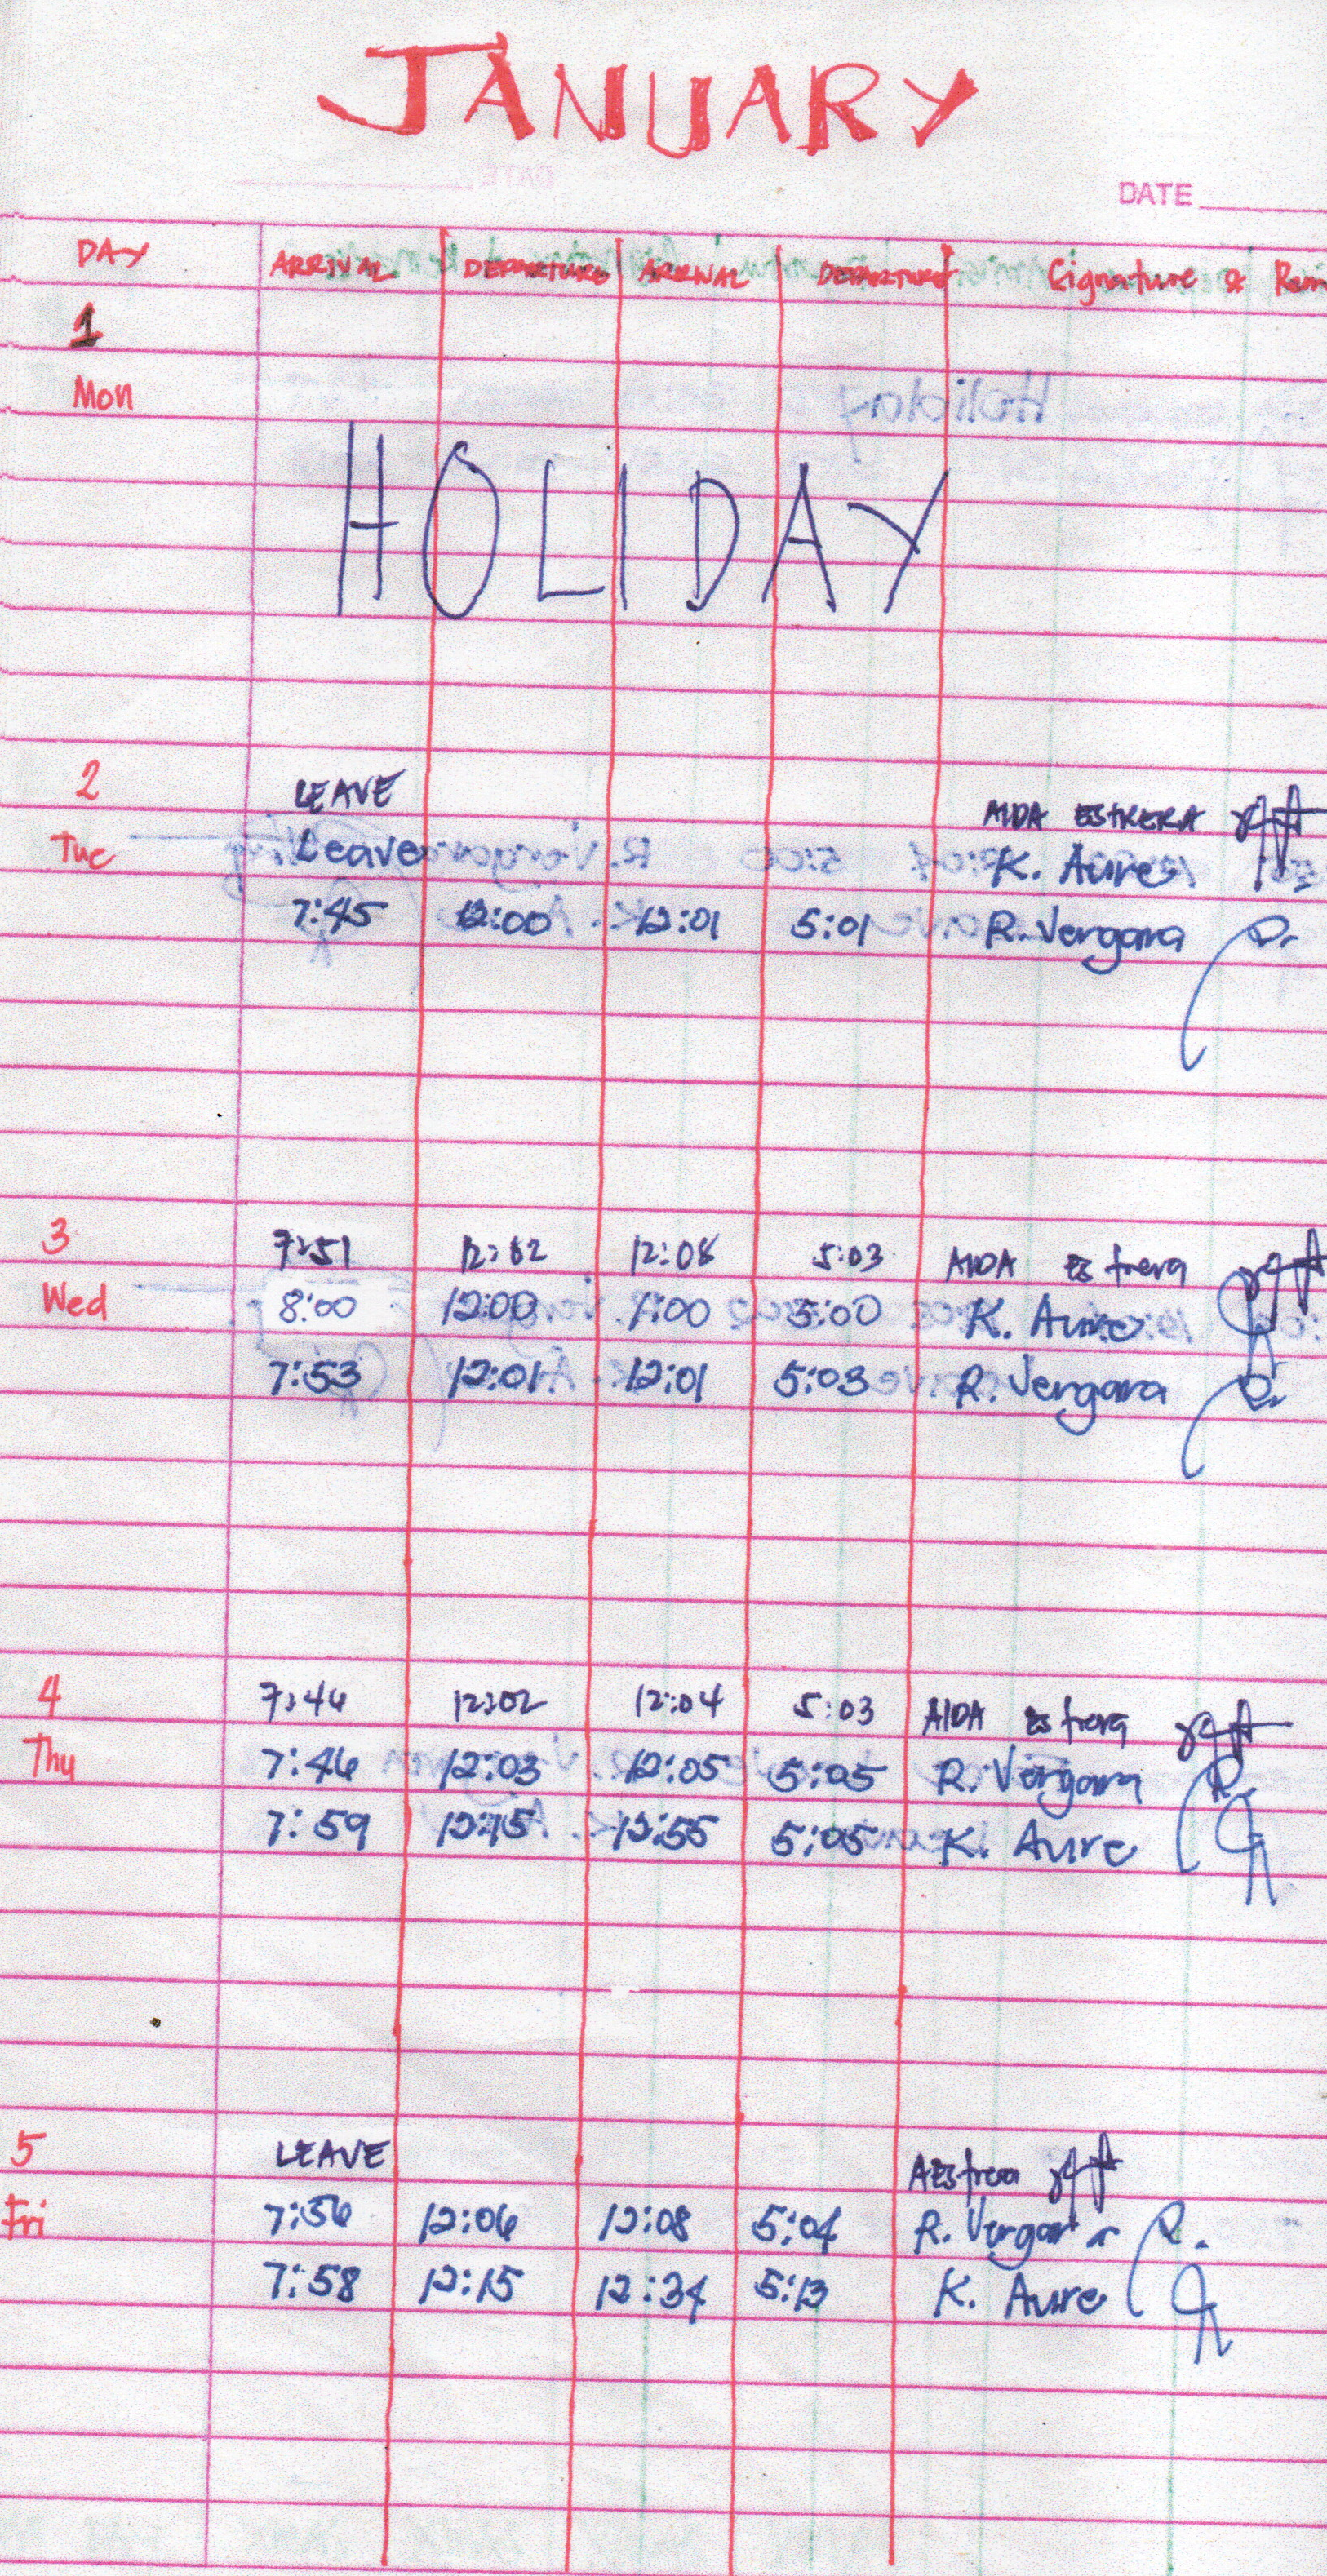 JANUARY
DATE
DAY ARRIVAL DEPARTURE ARRIVAL DEPARTURE Signature & Rem
1
Mon
HOLIDAY
2 LEAVE AIDA ESTRERA
Tue Leave K. Aure
7:45 12:00 12:01 5:01 R. Vergara
3 7:51 12:02 12:08 5:03 AIDA Estrera
Wed 8:00 12:00 1:00 5:00 K. Aure
7:53 12:01 12:01 5:03 R. Vergara
4 7:46 12:02 12:04 5:03 AIDA Estrera
Thu 7:46 12:03 12:05 5:05 R. Vergara
7:59 12:15 12:55 5:05 K. Aure
5 LEAVE AEstrera
Fri 7:56 12:06 12:08 5:04 R. Vergara
7:58 12:15 12:34 5:13 K. Aure